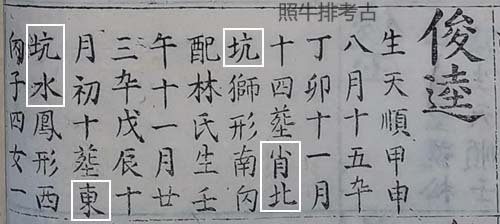 照牛排考古
俊逵
生天順甲申
八月十五卒
丁卯十一月
十四葬肖北
坑獅形南向
配林氏生壬
午十一月廿
三卒戊辰十
月初十葬東
坑水鳳形西
向子四女一